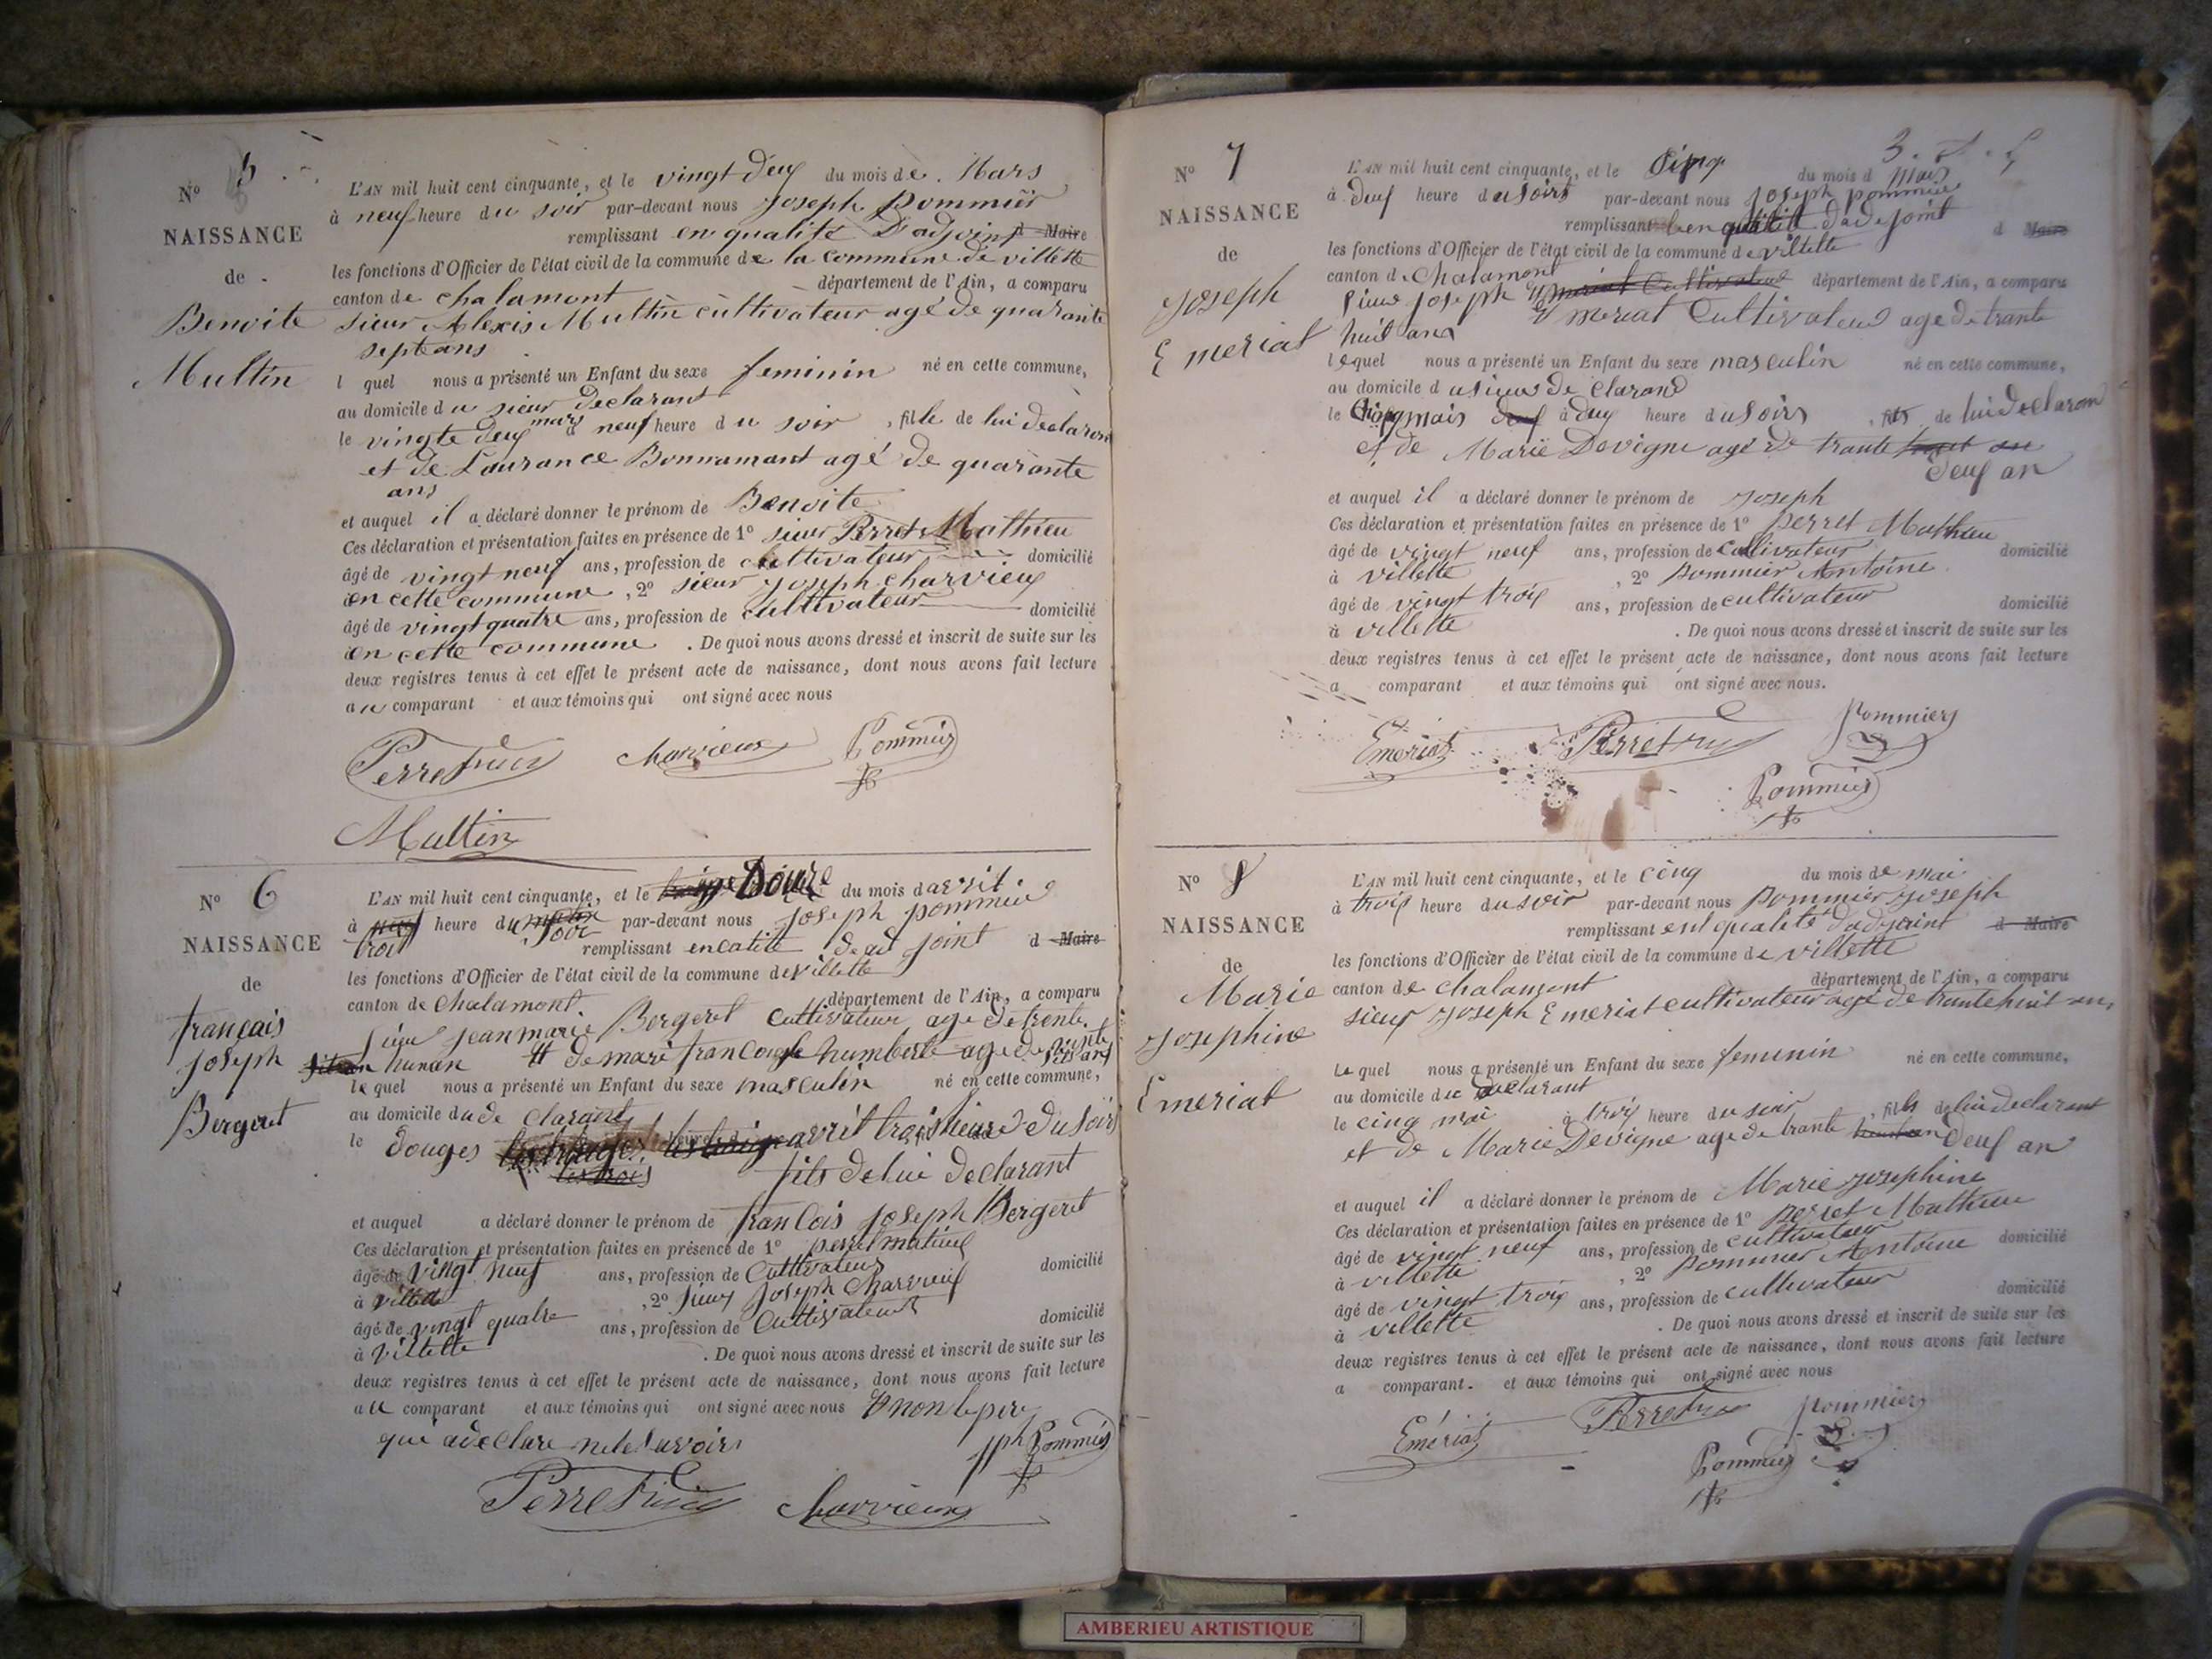 N° 5
NAISSANCE
de
Benoite
Multin
L'AN mil huit cent cinquante, et le vingt deux du mois de Mars
à neuf heure du soir par-devant nous Joseph Pommier
remplissant en qualité D'adjoint d Maire
les fonctions d'Officier de l'état civil de la commune de la commune de villette
canton de chalamont département de l'Ain, a comparu
sieur Alexis Multin cultivateur agé de quarante
sept ans
l quel nous a présenté un Enfant du sexe feminin né en cette commune,
au domicile du sieur Declarant
le vingte deux mars à neuf heure du soir, fille de lui declaron
et de Laurance Bonnamant agé de quarante
ans
et auquel il a déclaré donner le prénom de Benoite
Ces déclaration et présentation faites en présence de 1° sieur Perret Mathieu
âgé de vingt neuf ans, profession de cultivateur domicilié
en cette commune, 2° sieur Joseph charvieux
âgé de vingt quatre ans, profession de cultivateur domicilié
en cette commune. De quoi nous avons dressé et inscrit de suite sur les
deux registres tenus à cet effet le présent acte de naissance, dont nous avons fait lecture
au comparant et aux témoins qui ont signé avec nous
Perret Charvieux Pommier
Multin
N° 6
NAISSANCE
de
français
joseph
Bergeret
L'AN mil huit cent cinquante, et le Douze du mois d avril
à heure du soir par-devant nous joseph pommier
trois remplissant en catité de ad joint d Maire
les fonctions d'Officier de l'état civil de la commune de villette
canton de Chalamont. département de l'Ain, a comparu
sieur jean marie Bergeret Cultivateur age de trente
hunan et de marie francoise humbert age de
le quel nous a présenté un Enfant du sexe masculin né en cette commune,
au domicile du de clarant
le douges avril trois heure du soir
fils de lui declarant
et auquel a déclaré donner le prénom de francois joseph Bergeret
Ces déclaration et présentation faites en présence de 1° perret matieu
âgé de vingt neuf ans, profession de Cultivateur domicilié
à villette, 2° sieur joseph charvieux
âgé de vingt quatre ans, profession de Cultivateur domicilié
à villette. De quoi nous avons dressé et inscrit de suite sur les
deux registres tenus à cet effet le présent acte de naissance, dont nous avons fait lecture
au comparant et aux témoins qui ont signé avec nous et non le pere
qui a declare ne le savoir
jph Pommier
Perret Charvieux
N° 7
NAISSANCE
de
Joseph
Emeriat
L'AN mil huit cent cinquante, et le cinq du mois d mais
à deux heure du soirs par-devant nous joseph pommier
remplissant en qualité d'ade joint d Maire
les fonctions d'Officier de l'état civil de la commune de villette
canton de Chalamont département de l'Ain, a comparu
sieur joseph Emeriat Cultivateur
Emeriat Cultivateur age de trante
huit ans
lequel nous a présenté un Enfant du sexe masculin né en cette commune,
au domicile du sieur de claran
le cinq mais à deux heure du soirs, fils de lui declaran
et de Marie Devigne agé de trante
deux an
et auquel il a déclaré donner le prénom de Joseph
Ces déclaration et présentation faites en présence de 1° perret Mathieu
âgé de vingt neuf ans, profession de cultivateur domicilié
à villette, 2° Pommier Antoine
âgé de vingt trois ans, profession de cultivateur domicilié
à villette. De quoi nous avons dressé et inscrit de suite sur les
deux registres tenus à cet effet le présent acte de naissance, dont nous avons fait lecture
a comparant et aux témoins qui ont signé avec nous.
Emeriat Perret Pommier
Pommier
N° 8
NAISSANCE
de
Marie
Josephine
Emeriat
L'AN mil huit cent cinquante, et le cinq du mois de mai
à trois heure du soir par-devant nous Pommier Joseph
remplissant en qualité d'adjoint d Maire
les fonctions d'Officier de l'état civil de la commune de villette
canton de chalamont département de l'Ain, a comparu
sieur Joseph Emeriat cultivateur agé de trante huit ans
Le quel nous a présenté un Enfant du sexe femenin né en cette commune,
au domicile du declarant
le cinq mai à trois heure du soir, fille de lui declarant
et de Marie Devigne age de trante deux an
et auquel il a déclaré donner le prénom de Marie Josephine
Ces déclaration et présentation faites en présence de 1° perret Mathieu
âgé de vingt neuf ans, profession de cultivateur domicilié
à villette, 2° Pommier Antoine
âgé de vingt trois ans, profession de cultivateur domicilié
à villette. De quoi nous avons dressé et inscrit de suite sur les
deux registres tenus à cet effet le présent acte de naissance, dont nous avons fait lecture
a comparant. et aux témoins qui ont signé avec nous
Emériat Perret Pommier
Pommier
AMBERIEU ARTISTIQUE